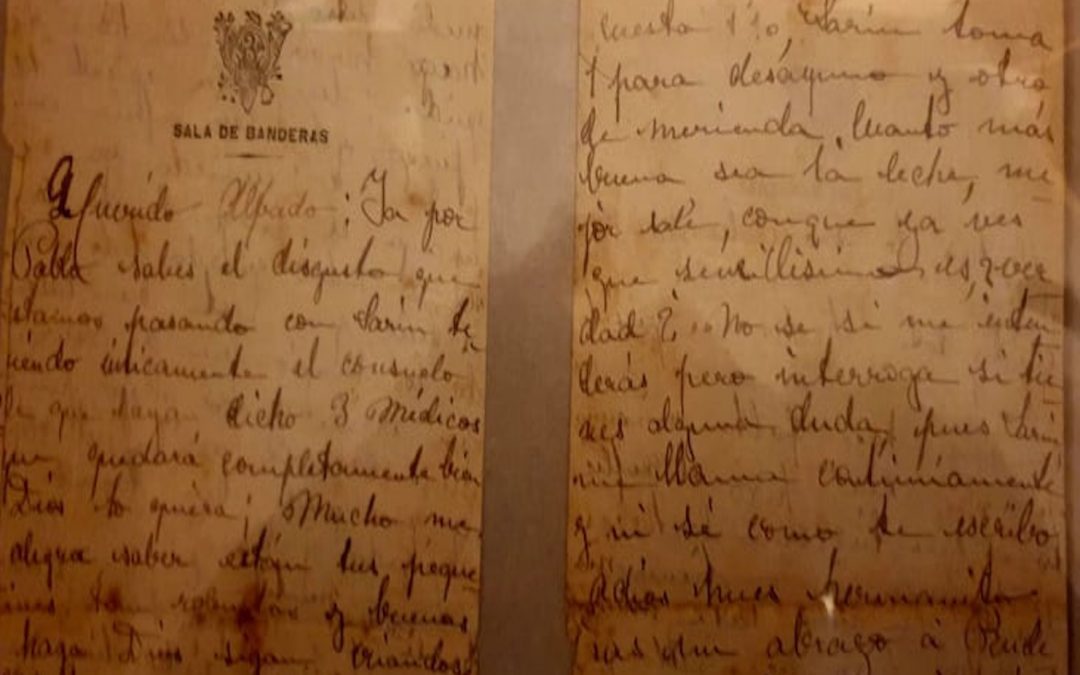 SALA DE BANDERAS
Querido Alfredo; Ya por
Pabla sabes el disgusto que
estamos pasando con Sarin te
niendo únicamente el consuelo
de que haya dicho 3 Médicos
que quedará completamente bien
Dios lo quiera; Mucho me
alegra saber están tus peque
ines tan robustos y buenos
haga Dios sigan criandose
cuesta 1'10, Sarin toma
1 para desayuno y otro
de merienda, Cuanto más
buena sea la leche, me
jor sale, conque ya ves
que sencillisimo es, ¿ver
dad? No se si me enten
derás pero interroga si tie
nes alguna duda, pues Sarin
me llama continuamente
y ni sé como te escribo
Adios pues hermanita
un abrazo á